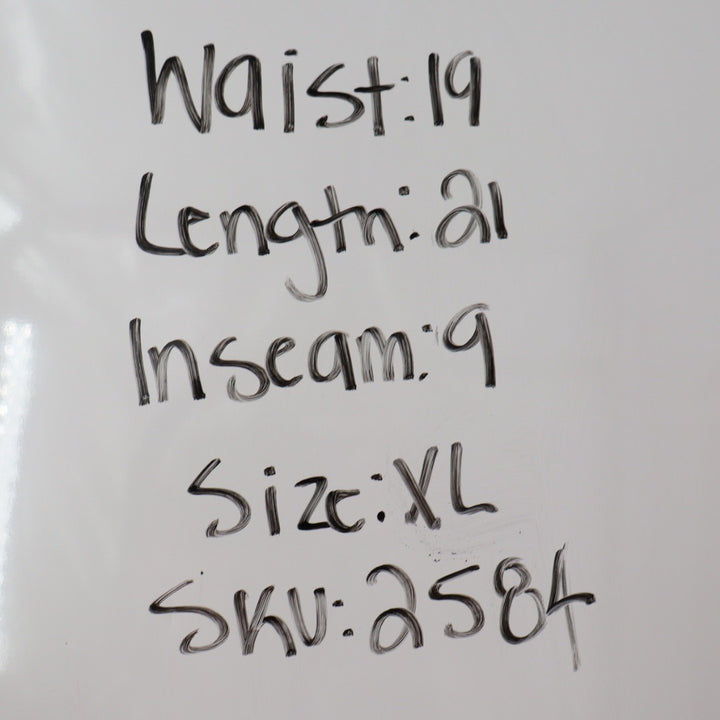 Waist: 19
Length: 21
Inseam: 9
Size: XL
SKU: 2584